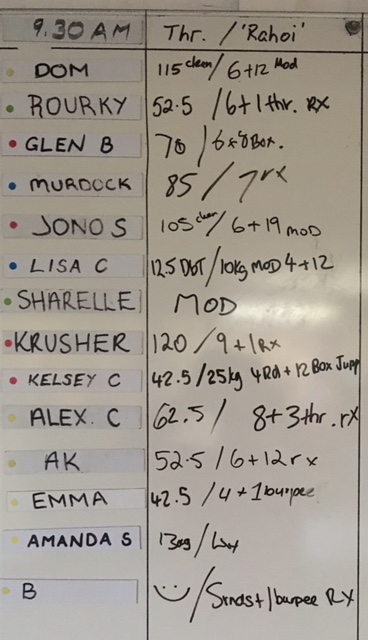 9.30 AM Thr. / 'Rahoi'
DOM 115 clean / 6+12 Mod
ROURKY 52.5 / 6+1 thr. RX
GLEN B 70 / 6+8 Box.
MURDOCK 85 / 7 rx
JONO S 105 clean / 6+19 MOD
LISA C 12.5 DBT / 10kg MOD 4+12
SHARELLE MOD
KRUSHER 120 / 9+1 Rx
KELSEY C 42.5 / 25kg 4Rd + 12 Box Jump
ALEX. C 62.5 / 8+3 thr. rX
AK 52.5 / 6+12 rx
EMMA 42.5 / 4+1 burpee
AMANDA S /
B / 5rnds+1burpee RX